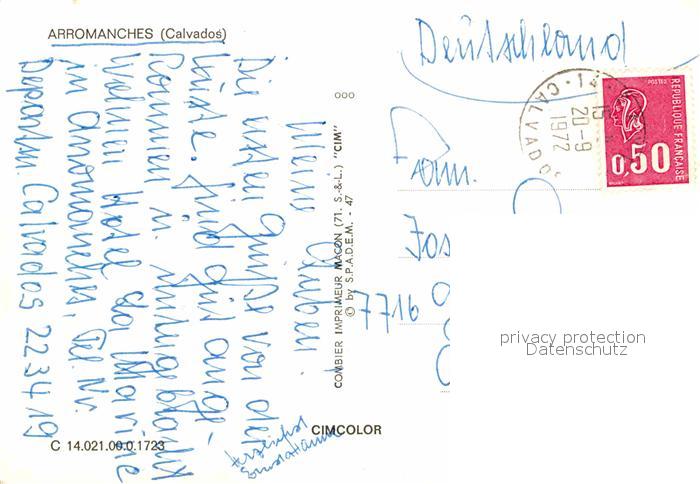 ARROMANCHES (Calvados)
Meine Lieben!
Die ersten Grüße von der
Küste. Sind gut ange-
kommen u. untergebracht
in Hotel de Marine
in Arromanches, Tel. Nr.
Departm. Calvados 22 34 19
C 14.021.00.0.1723
COMBIER IMPRIMEUR MACON (71. S.-&-L.) "CIM"
© by S.P.A.D.E.M. - 47
CIMCOLOR
Deutschland
15
20-9
1972
CALVADOS
POSTES
REPUBLIQUE FRANÇAISE
0,50
Fam.
Jos
7716
privacy protection
Datenschutz